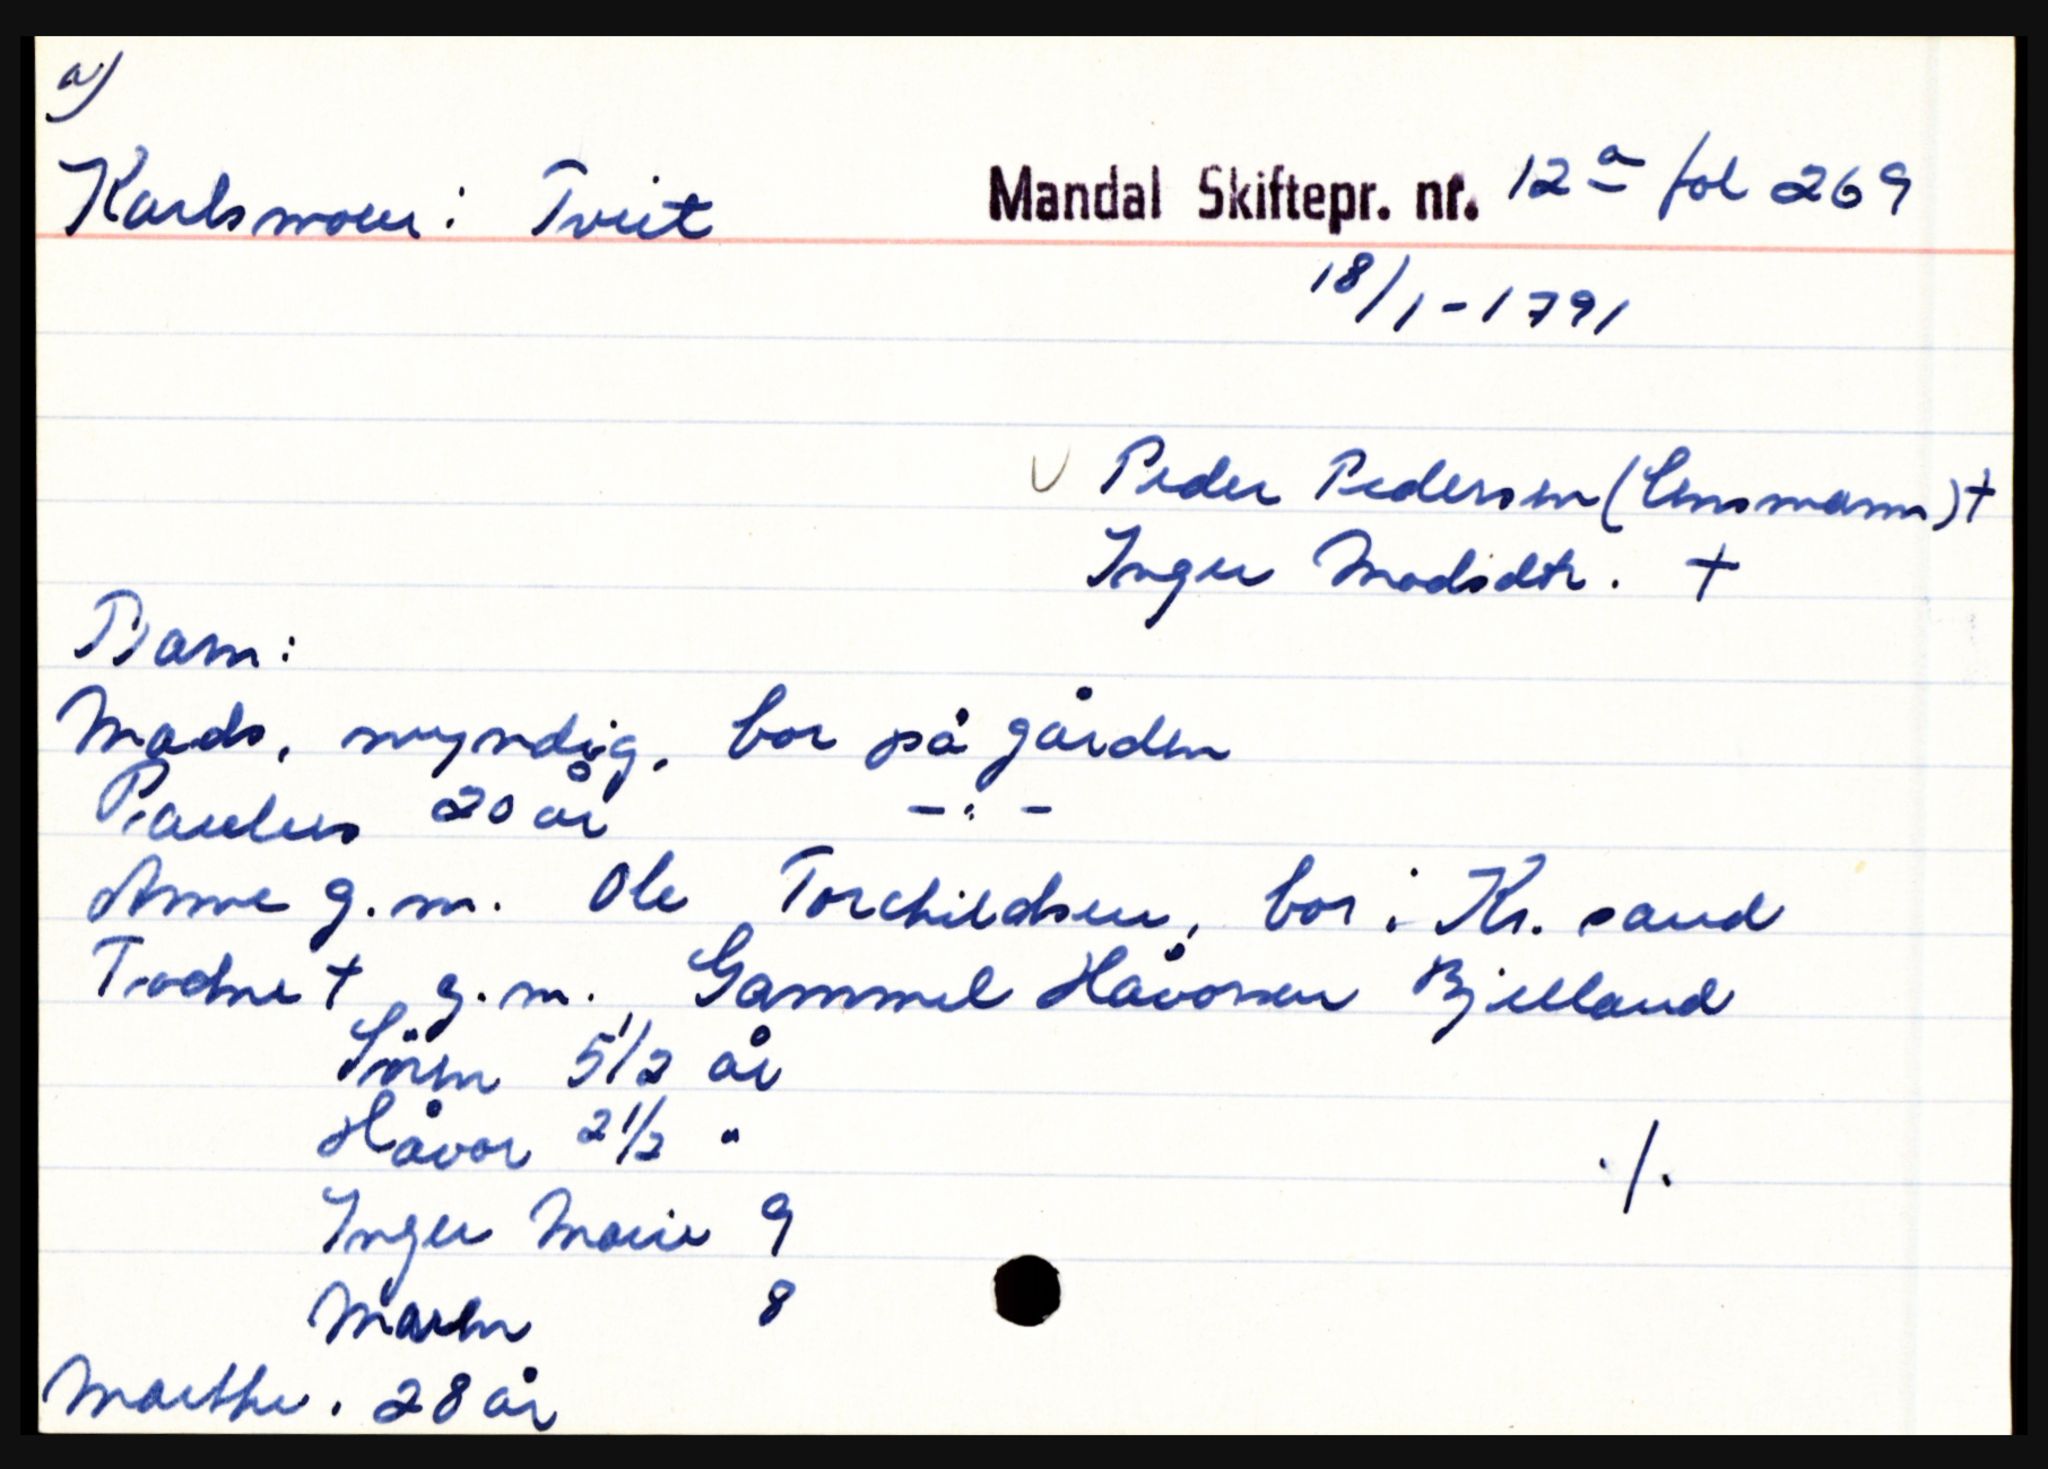 a)
Karlsmoen: Tveit Mandal Skiftepr. nr. 12a fol 269
18/1-1791
Peder Pedersen (Lensmann) †
Inger Madsdtr. †
Barn:
Mads, myndig, bor på gården
Paulus 20 år -"-
Anne g.m. Ole Torchildsen, bor i Kr.sand
Todne † g.m. Gammel Håvorsen Bjelland
Sören 5 1/2 år
Håvor 2 1/2 "
Inger Marie 9
Maren 8
Marthe. 28 år
./.